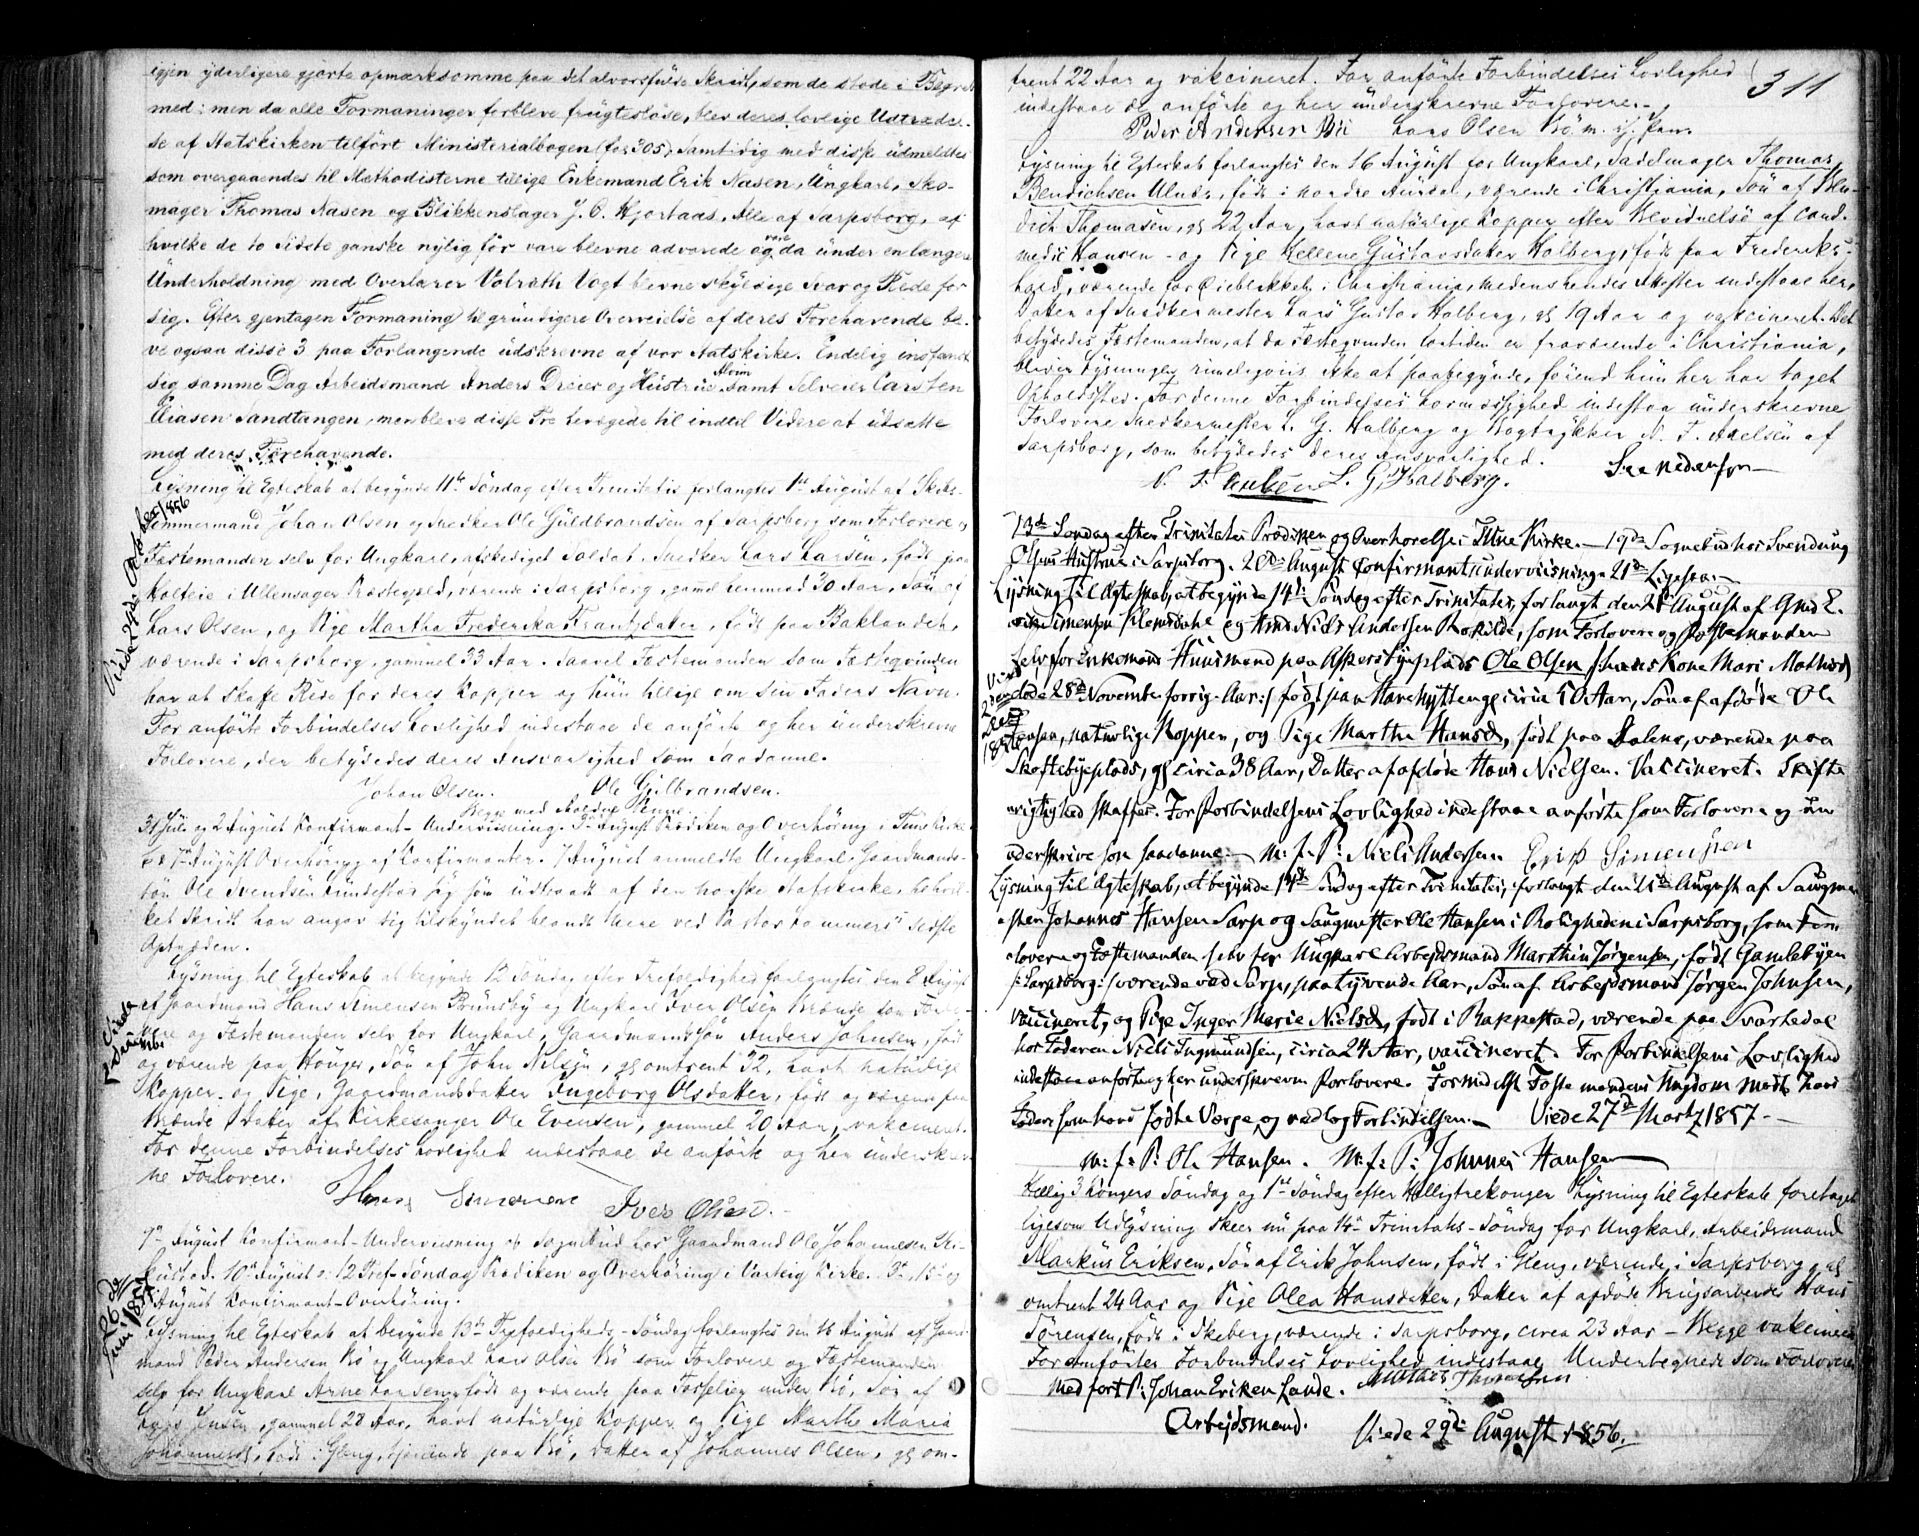 igjen yderligere gjorte opmærksomme paa det alvorsfulde Skridt, som de stode i Begreb
med; men da alle Formaninger forbleve frugtesløse, blev deres lovlige Udtrædel-
se af Statskirken tilført Ministerialbogen (fol 305). Samtidig med disse udmeldtes
som overgaaendes til Methodisterne tillige Enkemand Erik Nasen, Ungkarl, Sko-
mager Thomas Nasen og Blikkenslager J. O. Hjortaas, Alle af Sarpsborg, af
hvilke de to Sidste ganske nylig før vare blevne advarede og vare da under en længere
Underholdning med Overlærer Volrath Vogt blevne skyldige Svar og Rede for
sig. Efter gjentagen Formaning til grundigere Overveielse af deres Forehavende ble-
ve ogsaa disse 3 paa Forlangende udskrevne af vor Statskirke. Endelig indfandt
sig samme Dag Arbeidsmand Anders Dreier og Hustrue samt Selveier Carsten
Eliasen Sandtangen, men bleve disse Tre bevægede til indtil Videre at udsætte
med deres Forehavende.
Lysning til Egteskab at begynde 11te Søndag efter Trinitatis forlangtes 1ste August af Skibs-
tømmermand Johan Olsen og Snedker Ole Guldbrandsen af Sarpsborg som Forlovere og
Fæstemanden selv for Ungkarl, afskediget Soldat, Snedker Lars Larsen, født paa
Holteie i Ullensager Præstegjeld, værende i Sarpsborg, gammel henimod 30 Aar, Søn af
Lars Olsen, og Pige Martha Frederikke Frantzdatter, født paa Baklandet,
værende i Sarpsborg, gammel 33 Aar. Saavel Fæstemanden som Fæsteqvinden
har at skaffe Rede for deres Kopper og hun tillige om sin Faders Navn.
For anførte Forbindelses Lovlighed indestaae de anførte og her underskrevne
Forlovere, der betydedes deres Ansvarlighed som Saadanne.
Johan Olsen. Ole Gulbrandsen.
Begge med paaholden Penne.
31 Juli og 2 August Konfirmant-Underviisning. 3 August Prædiken og Overhøring i Tune Kirke.
6 og 7de August Overhøring af Konfirmanter. 7 August anmeldte Ungkarl, Gaardmands-
søn Ole Svendsen sig som udtraadt af den norske Statskirke, til hvil-
ket Skridt han angav sig tilskyndet blandt Mere ved Pastor Lammers' sidste
Optræden.
Lysning til Egteskab at begynde 12 Søndag efter Trefoldighed forlangtes den 8 August
af Gaardmand Hans Simensen Brunsby og Ungkarl Iver Olsen som Forlo-
vere og Fæstemanden selv for Ungkarl, Gaardmandssøn Anders Johnsen, født
og værende paa Hønger, Søn af John Nilsen, gl omtrent 32, havt naturlige
Kopper og Pige, Gaardmandsdatter Ingeborg Olsdatter, født og værende paa
Datter af Kirkesanger Ole Evensen, gammel 20 Aar, vakcineret.
For denne Forbindelses Lovlighed indestaae de anførte og her underskrev-
ne Forlovere.
Hans Simensen Iver Olsen.
9de August Konfirmant-Underviisning og Sognebud hos Gaardmand Ole Johannesen
10de August 12 Tref. Søndag Prædiken og Overhøring i Varteig Kirke. 13de, 15de og
August Konfirmant-Overhøring.
Lysning til Egteskab at begynde 13de Trefoldigheds-Søndag forlangtes den 16 August af Gaard-
mand Peder Andersen Bø og Ungkarl Lars Olsen Bø som Forlovere og Fæstemanden
selv for Ungkarl Arne Larsen, født og værende paa under Bø, Søn af
Lars Jensen, gammel 28 Aar, havt naturlige Kopper og Pige Marthe Maria
Johannesd, født i Gleng, tjenende paa Bø, Datter af Johannes Olsen, gl om-
Viede 24de October 1856
Viede
Viede 26de Juni 1857
311
trent 22 Aar og vakcineret. For anførte Forbindelses Lovlighed
indestaae de anførte og her underskrevne Forlovere.
Peder Andersen Bø Lars Olsen Bø m. f. Pen.
Lysning til Egteskab forlangtes den 16 August for Ungkarl, Sadelmager Thomas
Bendichsen Ulnes, født i nordre Aurdal, værende i Christiania, Søn af Ben-
dich Thomasen, gl 22 Aar, havt naturlige Kopper efter Bevidnelse af cand.
medic Hansen - og Pige Hellene Gustavsdatter Halberg, født paa Frederiks-
hald, værende for Øieblikket i Christiania, medens hendes Skifter indestaae her,
Datter af Snedkermester Lars Gustav Halberg, gl 19 Aar og vakcineret. Det
betydedes Fæstemanden, at da Fæsteqvinden fortiden er fraværende i Christiania,
bliver Lysningen rimeligviis ikke at paabegynde, førend hun her har taget
Opholdssted. For denne Forbindelses Lovmæssighed indestaa underskrevne
Forlovere Snedkermester L. G. Halberg og Bogtrykker N. F. Axelsen af
Sarpsborg, som betydedes deres Ansvarlighed. See nedenfor
N. F. Axelsen L. G. Halberg.
13de Søndag efter Trinitatis Prædiken og Overhørelse i Tune Kirke. — 19de Sognebud hos Svendung
Olsens Hustrue i Sarpsborg. 20de August Confirmantundervisning. 21de Ligesaa. —
Lysning til Ægteskab, at begynde 14de Søndag efter Trinitatis, forlangt den 21de August af Gmd E-
rik Simensen Klemsdahl og Gmd Niels Andersen Roskilde, som Forlovere og Fæstemanden
selv for Enkemand Huusmand paa Askersbyeplads Ole Olsen /: hans Kone Mari Mathisd
døde 28de November forrig Aar :/ født paa Harehytteng circa 50 Aar, Søn af afdøde Ole
Jensen, naturlige Kopper, og Pige Martha Hansd, født paa Dalene, værende paa
Skoftebyeplads, gl circa 38 Aar, Datter af afdøde Hans Nielsen. Vaccineret. Skifte
rigtighed skaffes. For Forbindelsens Lovlighed indestaae anførte som Forlovere og un
derskrive som saadanne. — M: f: P: Niels Andersen. Erik Simensen
Lysning til Ægteskab, at begynde 14de Søndag efter Trinitatis, forlangt den 21de August af Saugme
steren Johannes Hansen Sarp og Saugmester Ole Hansen i Roligheden i Sarpsborg, som For
lovere og Fæstemanden selv for Ungkarl Arbejdsmand Marthin Jørgensen, født Gamlebyen
/: Sarpsborg :/ værende ved Sarp, paa tyvende Aar, Søn af Arbejdsmand Jørgen Johnsen,
vaccineret, og Pige Inger Marie Nielsd, født i Rappestad, værende paa Svartedal
hos Faderen Niels Ingmundsen, circa 24 Aar, vaccineret. For Forbindelsens Lovlighed
indestaae anførte og her underskrevne Forlovere. Formedelst Fæstemandens Ungdom mødte hans
Fader som hans fødte Værge og vedtog Forbindelsen. — Viede 27de Martz 1857 —
M: f: P: Ole Hansen. M: f: P: Johannes Hansen
Hellig 3 Kongers Søndag og 1ste Søndag efter Helligtrekonger Lysning til Egteskab foretaget
ligesom Udlysning skeer nu paa 14de Trinitatis-Søndag for Ungkarl, Arbeidsmand
Markus Eriksen, Søn af Erik Johnsen, født i Gleng, værende i Sarpsborg, gl
omtrent 24 Aar og Pige Olea Hansdatter, Datter af afdøde Brugsarbeider Hans
Sørensen, født i Skeberg, værende i Sarpsborg, circa 23 Aar - Begge vakcineret.
For Anførtes Forbindelses Lovlighed indestaae Undertegnede som Forlovere
Med ført P: Johan Eriksen Lande. Mathis Thoresen
Arbejdsmand. Viede 29de August 1856.